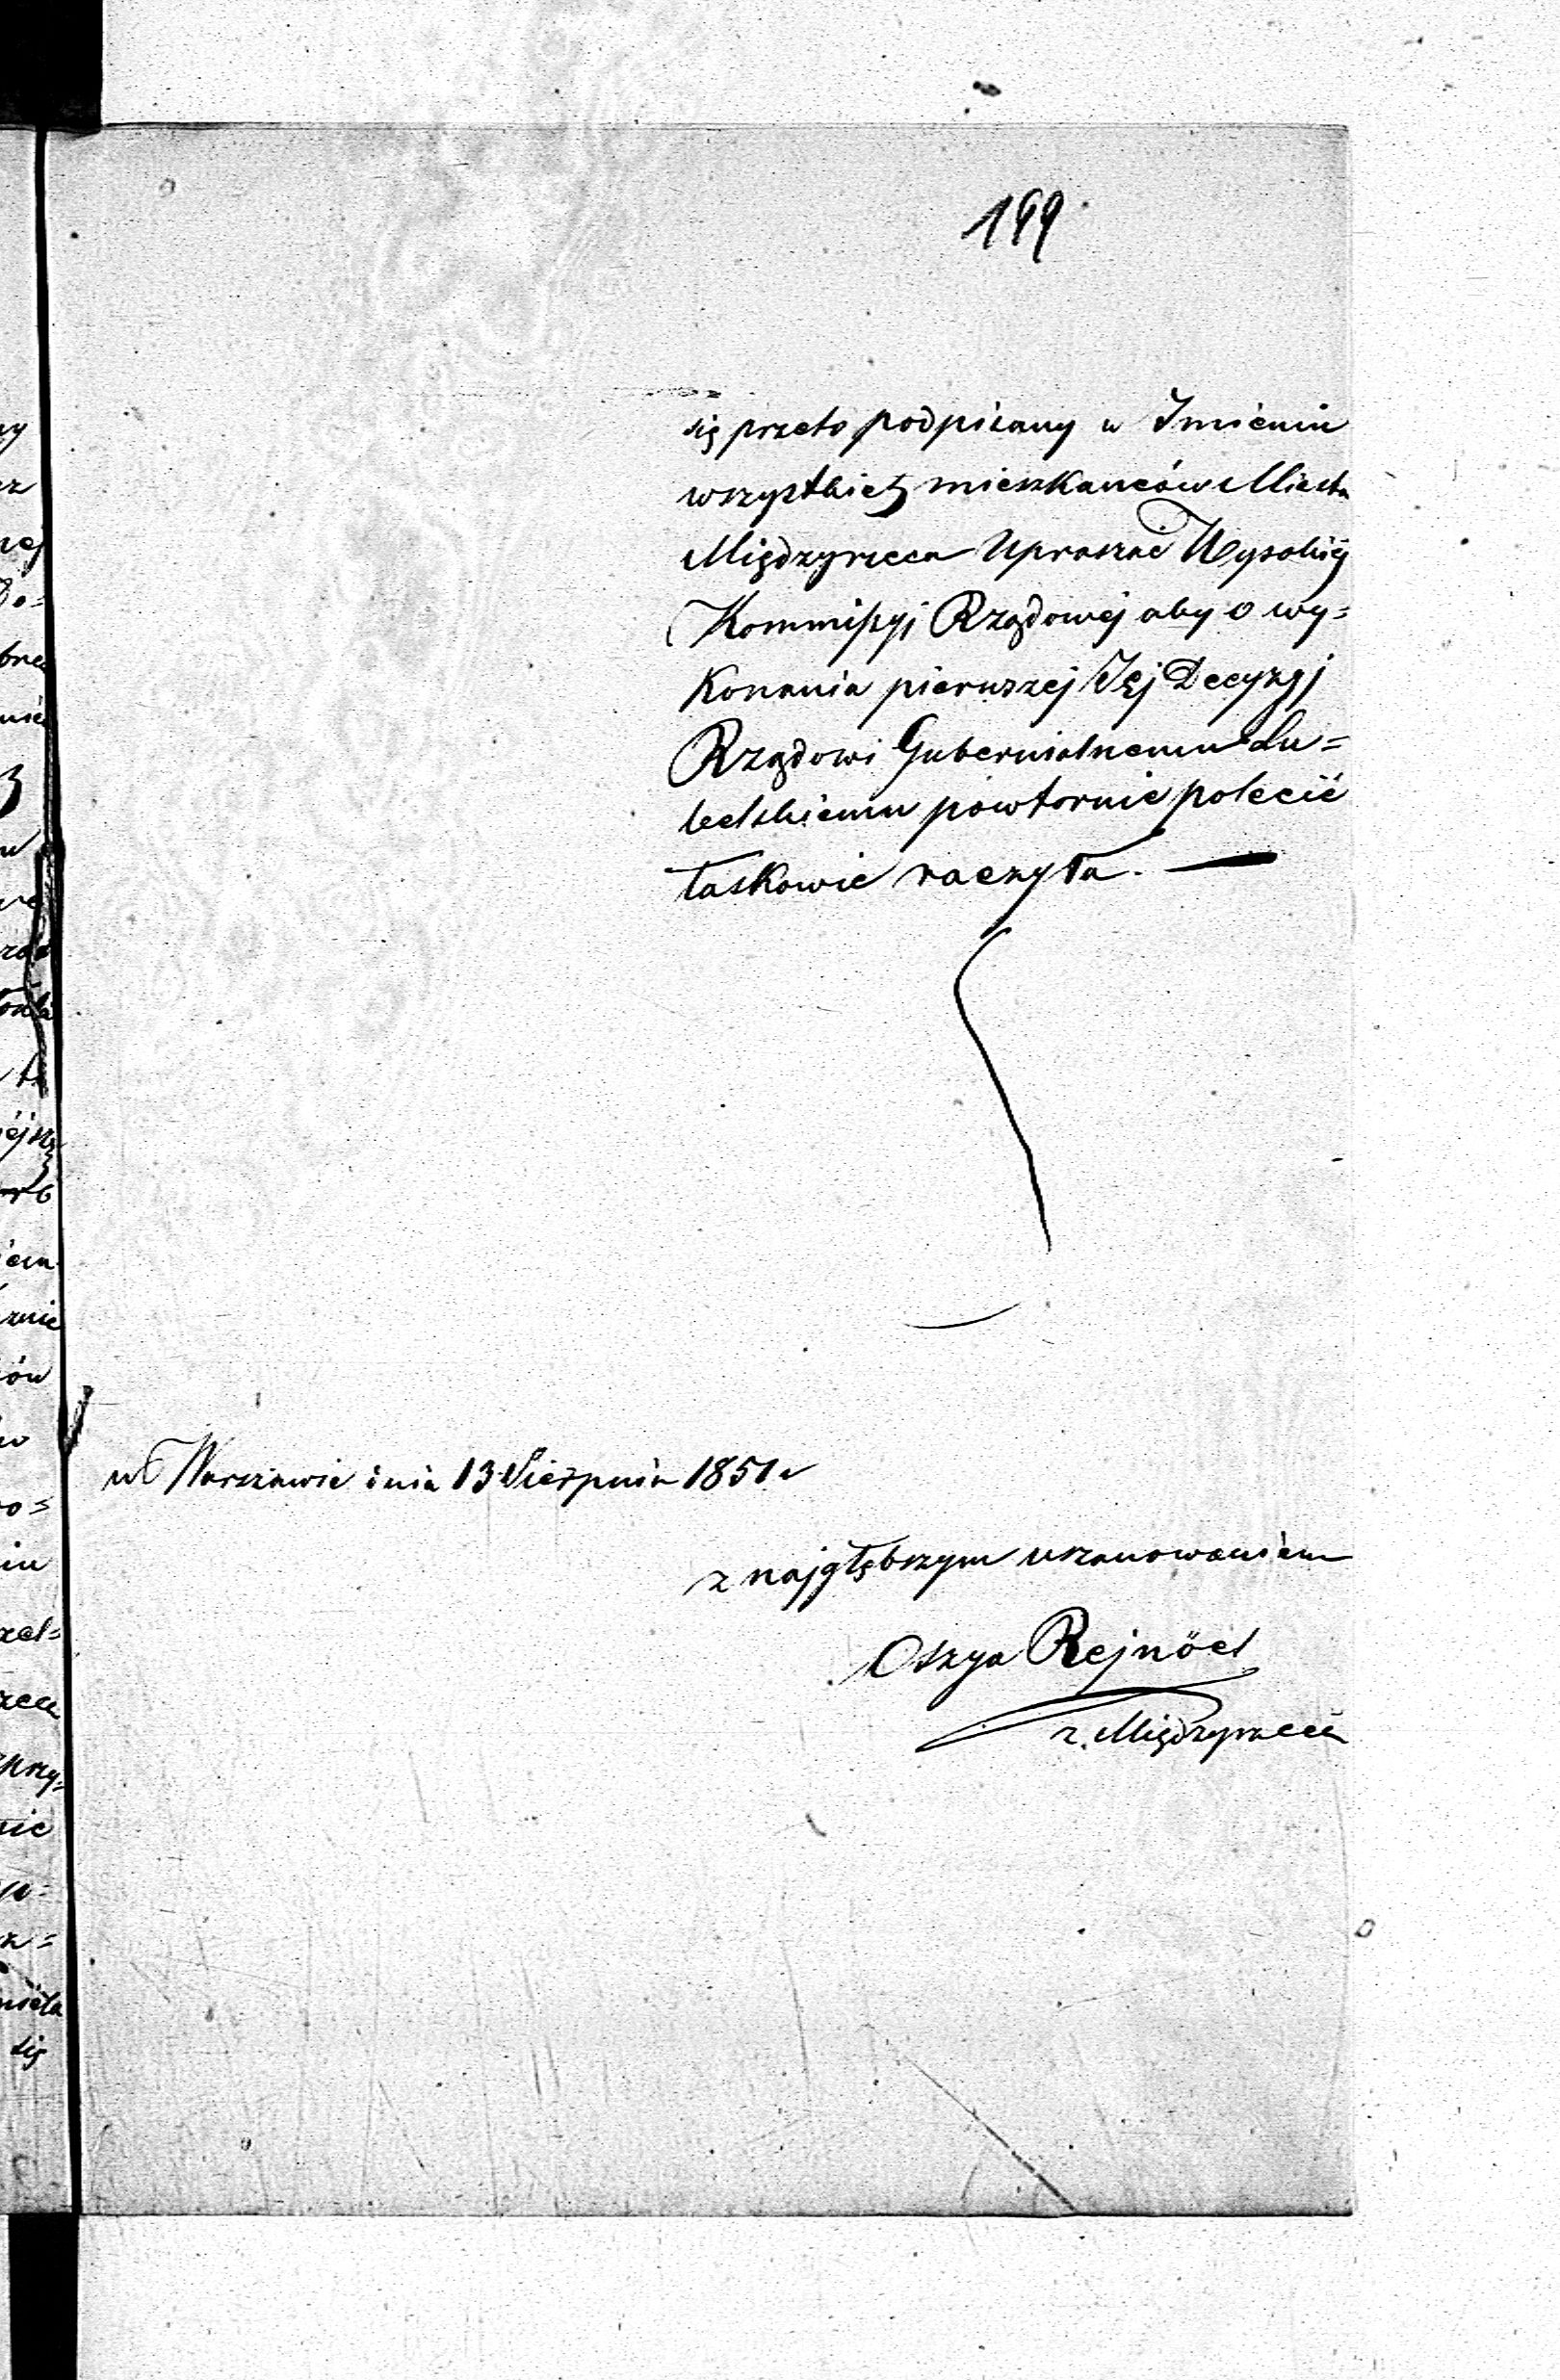 199
się przeto podpisany w Imieniu
wszystkich mieszkańców Miasta
Międzyrzeca Upraszać Wysokiéj
Kommissyj Rządowéj aby o wy=
konania pierwszej Jéj Decyzyj
Rządowi Gubernialnemu Lu=
belskiemu powtornie polecić
łaskawie raczyła. —
w Warszawie dnia 13 Sierpnia 1851 r
z najgłębszym uszanowaniem
Oszya Rejnöel
z Międzyrzeca